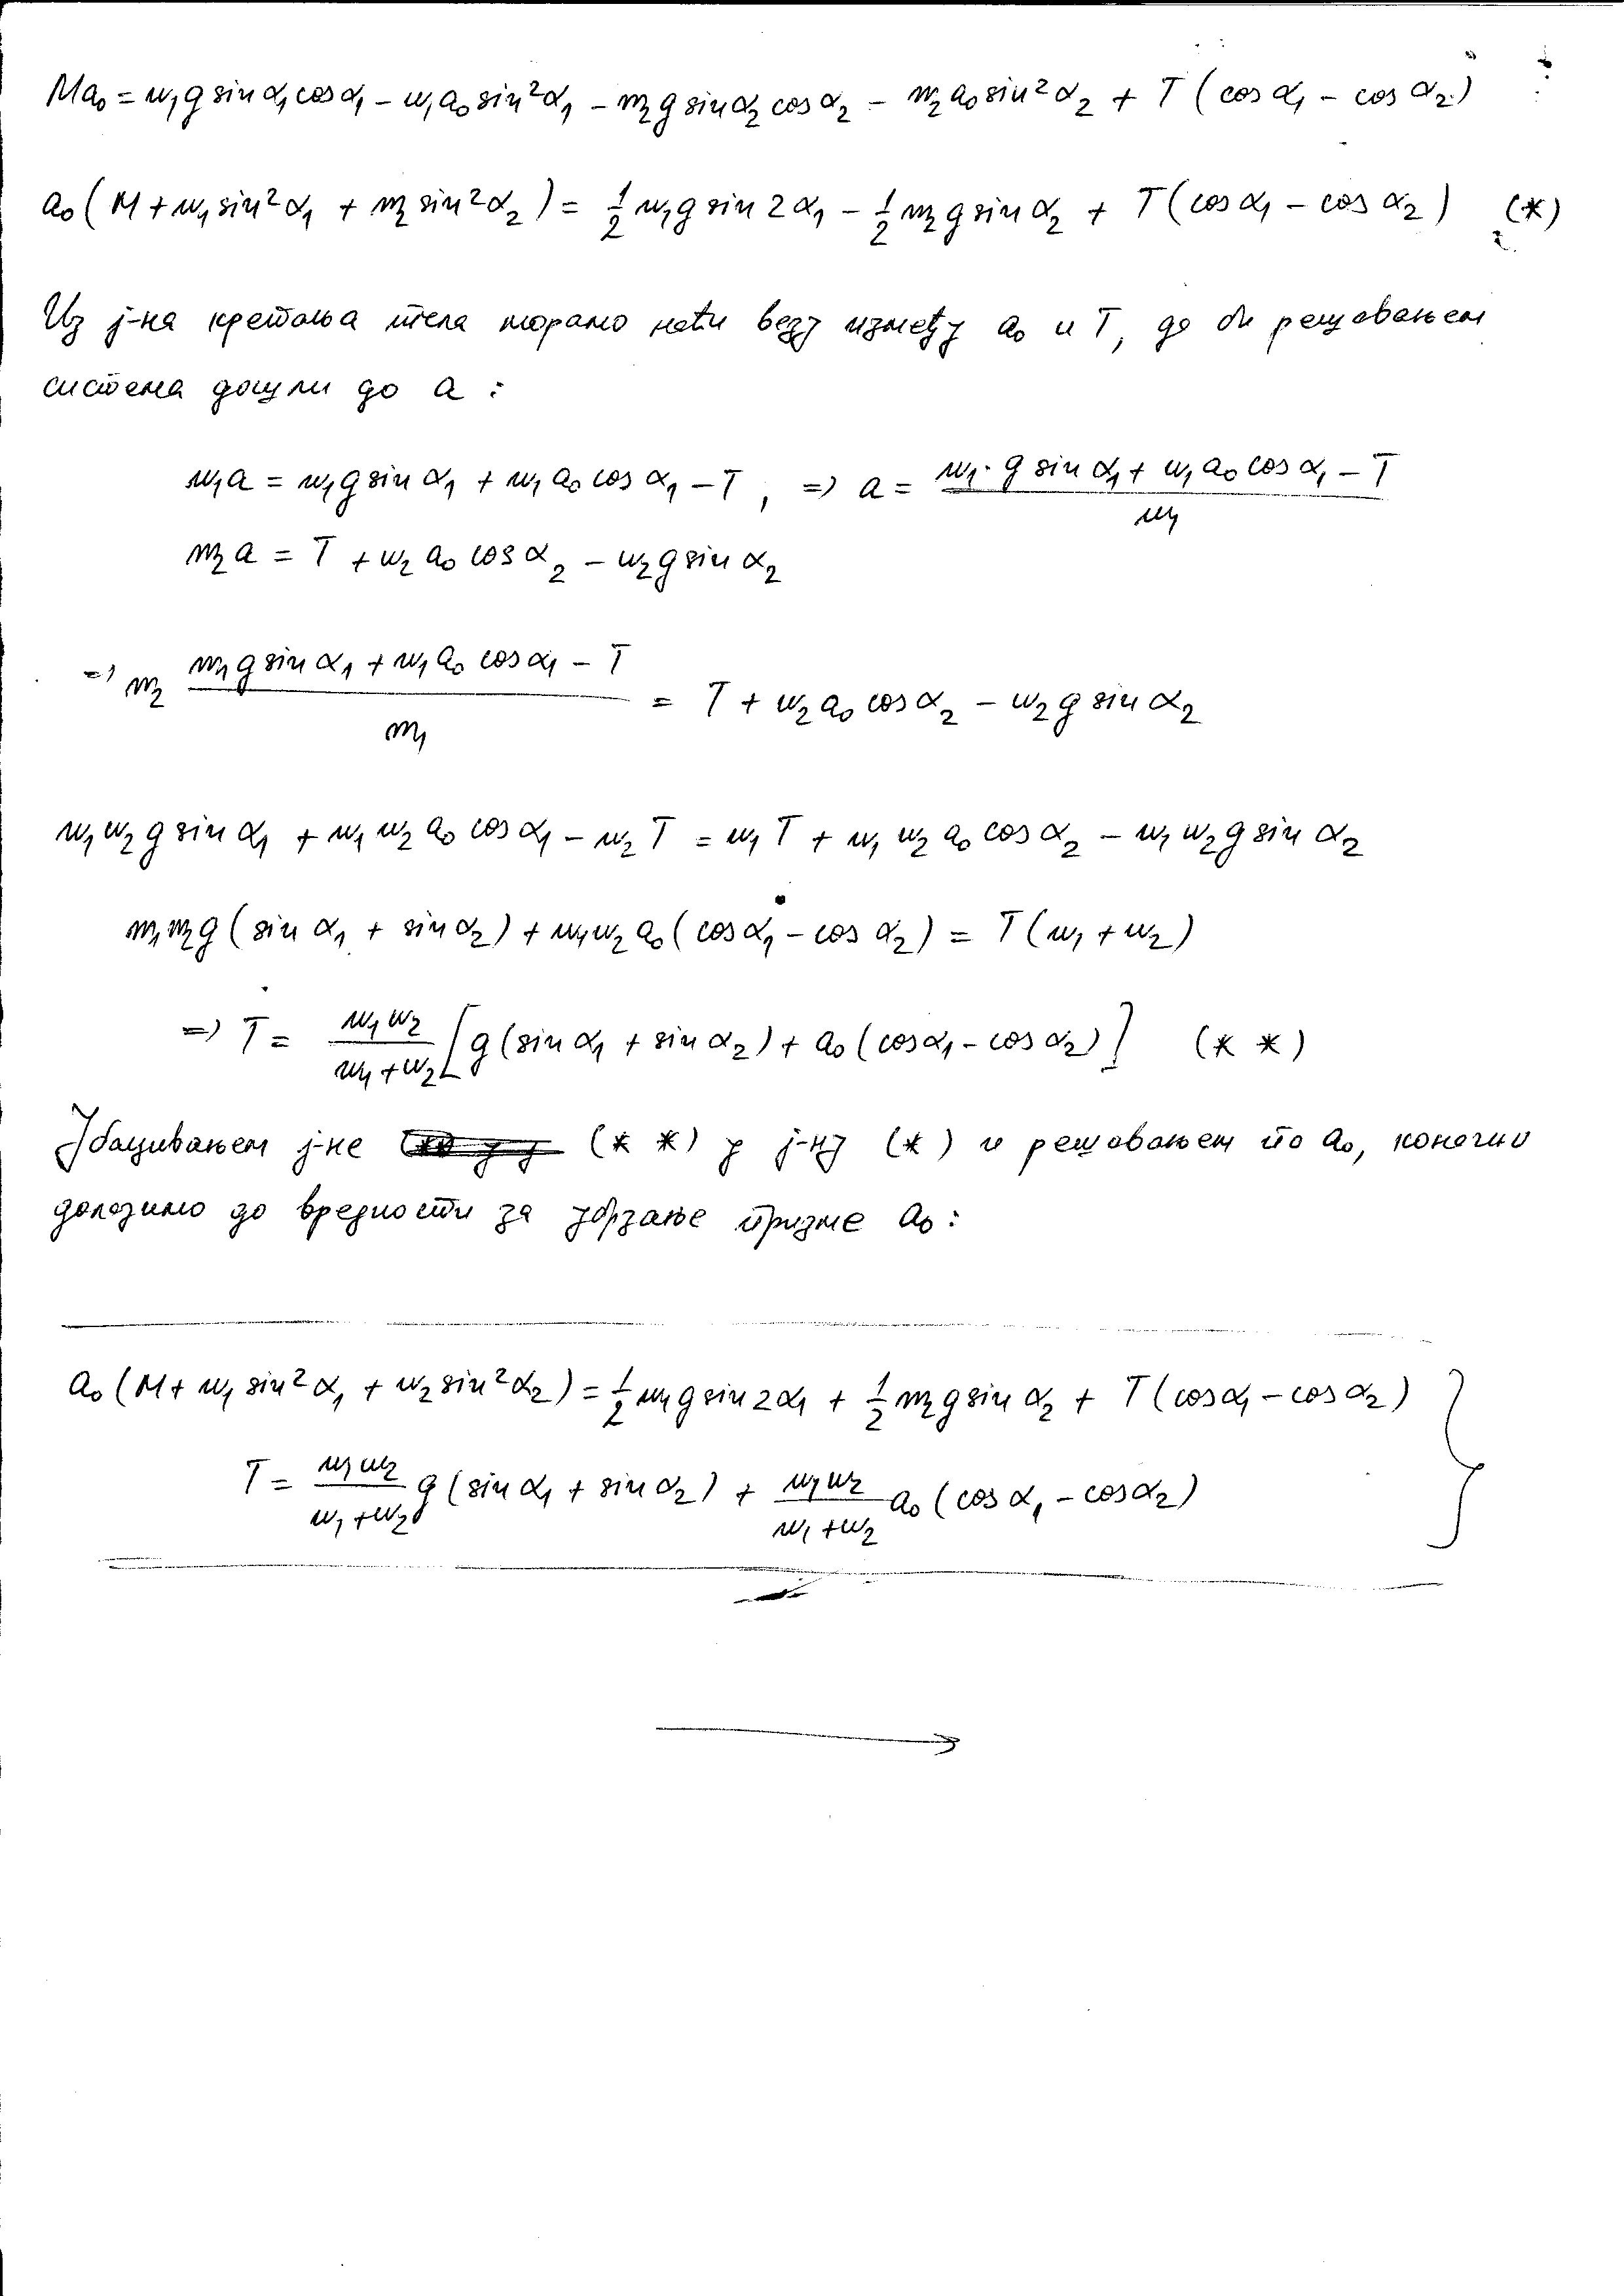 Ma₀ = m₁g sin α₁ cos α₁ − m₁a₀ sin² α₁ − m₂g sin α₂ cos α₂ − m₂a₀ sin² α₂ + T (cos α₁ − cos α₂)
a₀ (M + m₁ sin² α₁ + m₂ sin² α₂) = 1/2 m₁g sin 2α₁ − 1/2 m₂g sin α₂ + T (cos α₁ − cos α₂) (*)
Из ј-на кретања тела морамо наћи везу између a₀ и T, да би решавањем
система дошли до a :
m₁a = m₁g sin α₁ + m₁a₀ cos α₁ − T , => a = (m₁·g sin α₁ + m₁a₀ cos α₁ − T)/m₁
m₂a = T + m₂a₀ cos α₂ − m₂g sin α₂
=> m₂ (m₁g sin α₁ + m₁a₀ cos α₁ − T)/m₁ = T + m₂a₀ cos α₂ − m₂g sin α₂
m₁m₂g sin α₁ + m₁m₂a₀ cos α₁ − m₂T = m₁T + m₁m₂a₀ cos α₂ − m₁m₂g sin α₂
m₁m₂g (sin α₁ + sin α₂) + m₁m₂a₀ (cos α₁ − cos α₂) = T (m₁ + m₂)
=> T = m₁m₂/(m₁+m₂) [g (sin α₁ + sin α₂) + a₀ (cos α₁ − cos α₂)] (* *)
Убацивањем ј-не (* *) у ј-ну (*) и решавањем по a₀, коначно
долазимо до вредности за убрзање призме a₀ :
a₀ (M + m₁ sin² α₁ + m₂ sin² α₂) = 1/2 m₁g sin 2α₁ + 1/2 m₂g sin α₂ + T (cos α₁ − cos α₂)
T = m₁m₂/(m₁+m₂) g (sin α₁ + sin α₂) + m₁m₂/(m₁+m₂) a₀ (cos α₁ − cos α₂)